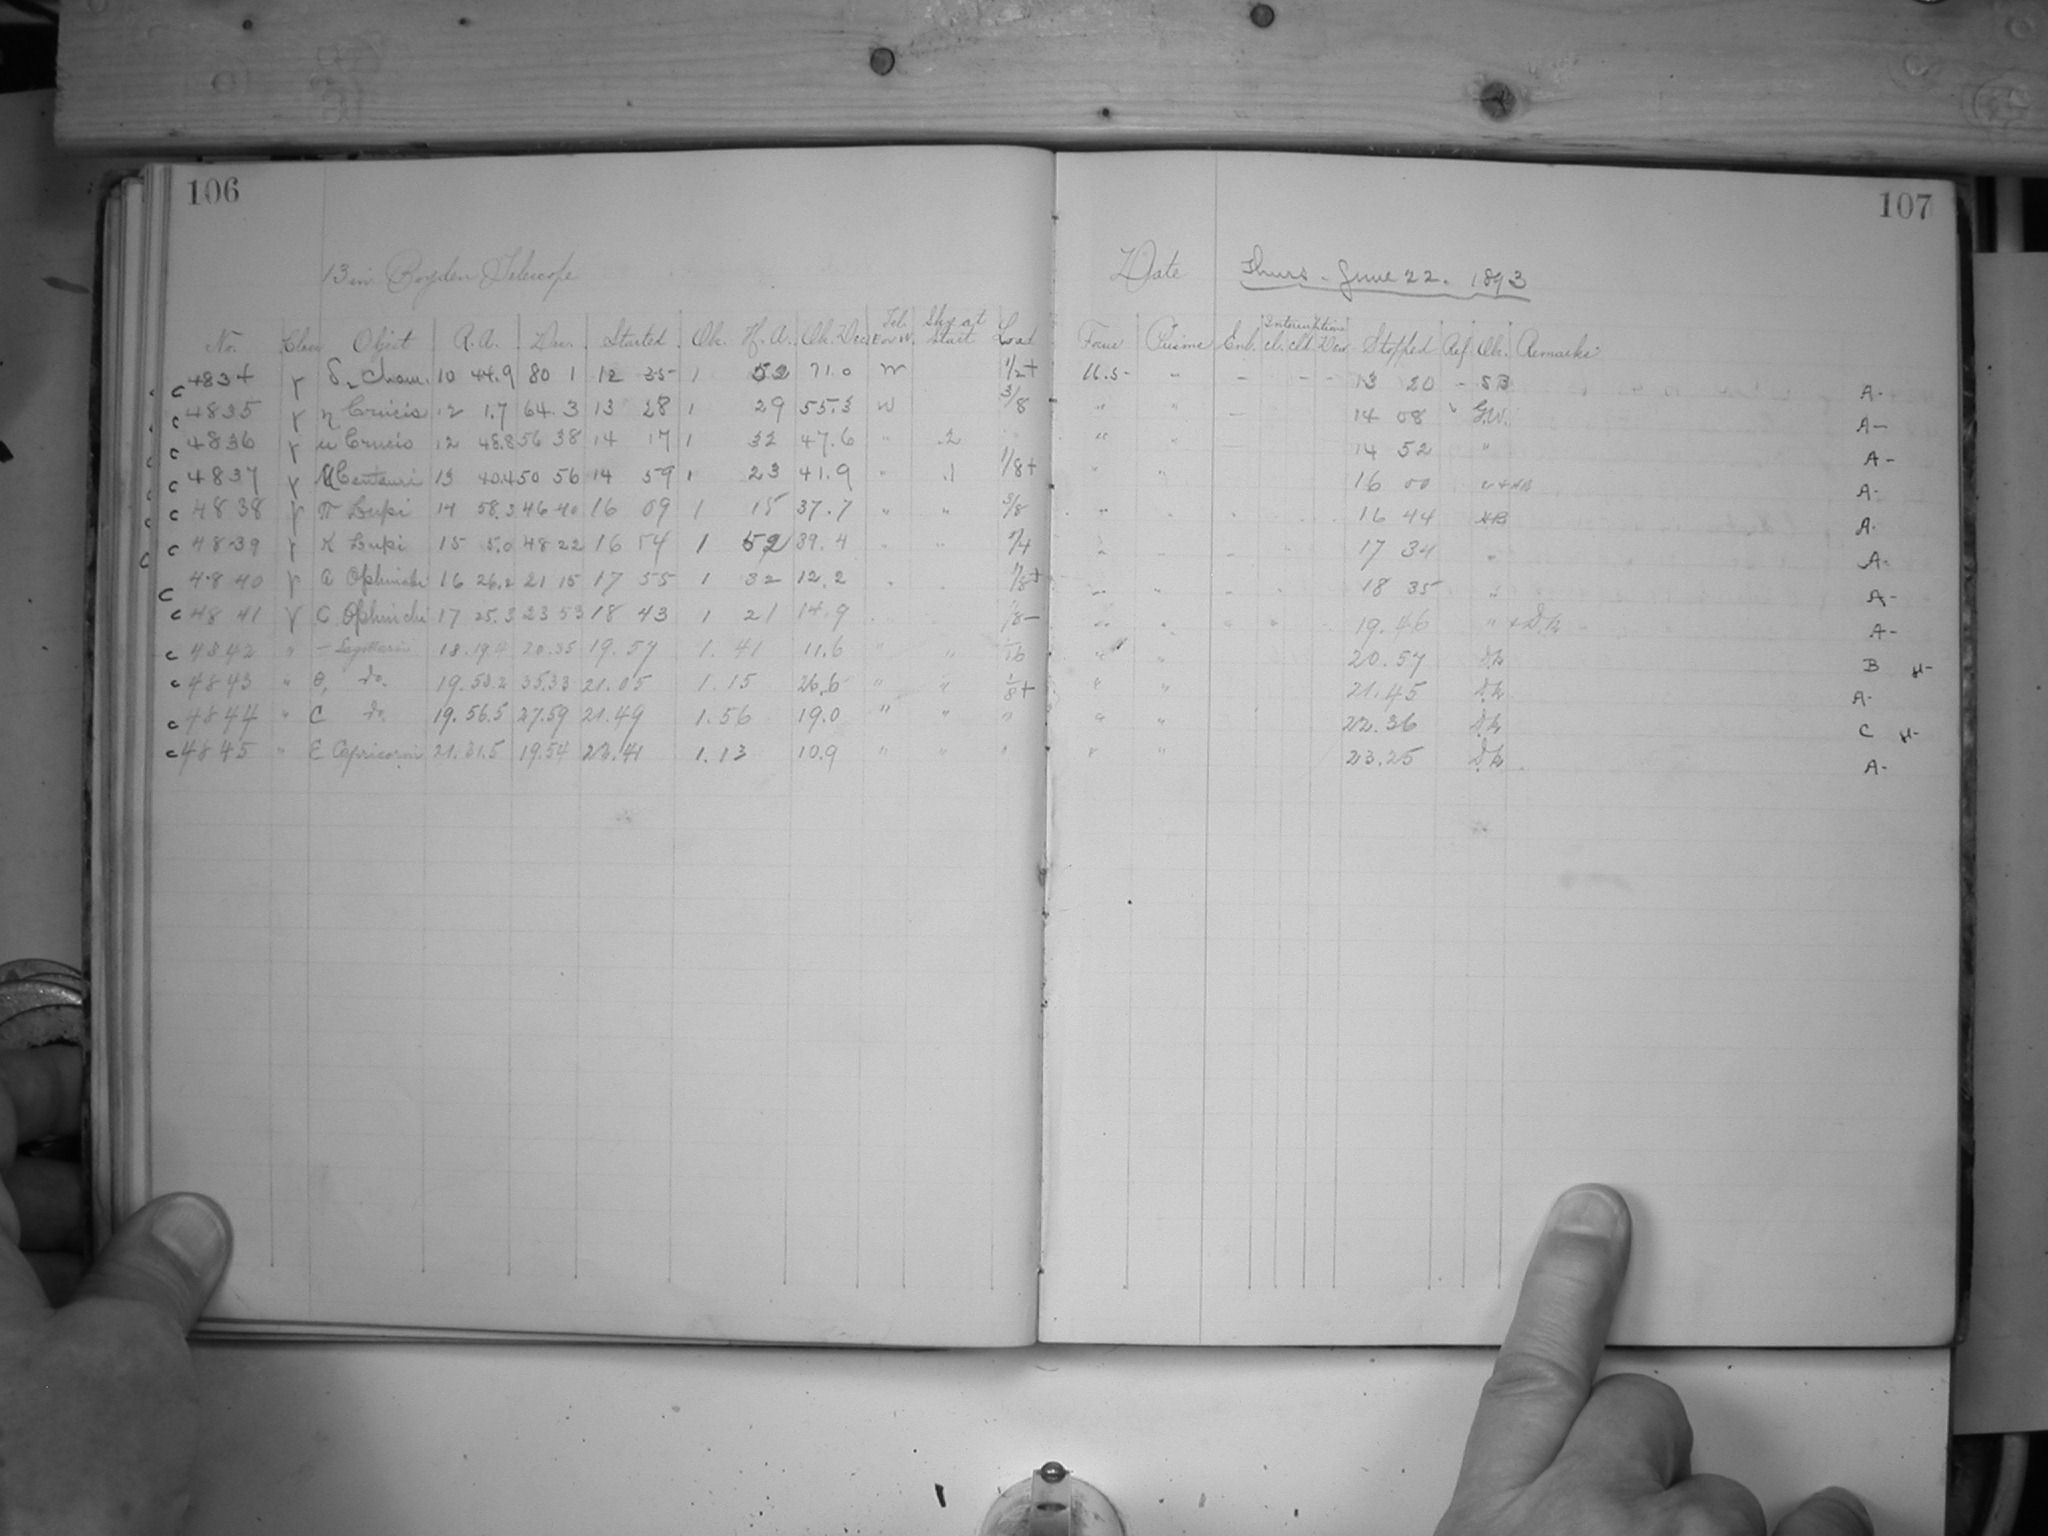 106
107
13 in Boyden Telescope
Date Thurs. June 22. 1893
No. Class Object R.A. Dec. Started Ob. H.A. Ob. Dec. Tel. E or W. Sky at Start Load Focus Prisms Enl. Interruptions cl. cld. Dew Stopped Ref. Ob. Remarks
c 4834 γ δ2 Cham. 10 44.9 80 1 12 35 1 52 71.0 W 1/2+ 16.5 " - - - 13 20 - SB A-
c 4835 γ η Crucis 12 1.7 64.3 13 28 1 29 55.3 W 3/8 " " - 14 08 " G.W. A-
c 4836 γ μ Crucis 12 48.8 56 38 14 17 1 32 47.6 " .2 " " 14 52 " A-
c 4837 γ Centauri 13 40.4 50 56 14 59 1 23 41.9 " .1 1/8+ " " 16 00 A-
c 4838 γ π Lupi 14 58.3 46 40 16 09 1 15 37.7 " " 3/8 " 16 44 HB A-
c 4839 γ κ Lupi 15 5.0 48 22 16 54 1 52 39.4 " " 1/4 " 17 34 " A-
c 4840 γ Ophiuchi 16 26.2 21 15 17 55 1 32 12.2 1/8+ " " 18 35 " A-
c 4841 γ C Ophiuchi 17 25.3 23 53 18 43 1 21 14.9 1/8- " " 19.46 " A-
c 4842 " - Sagittarii 18.19.4 20.35 19.57 1.41 11.6 " " 1/16 " " 20.57 B
c 4843 " θ, do. 19.53.2 35.33 21.05 1.15 26.6 " " 1/8+ " " 21.45 A-
c 4844 " C do. 19.56.5 27.59 21.49 1.56 19.0 " " " " " 22.36 C
c 4845 " ε Capricorni 21.31.5 19.54 1.13 10.9 " " " " " 23.25 A-